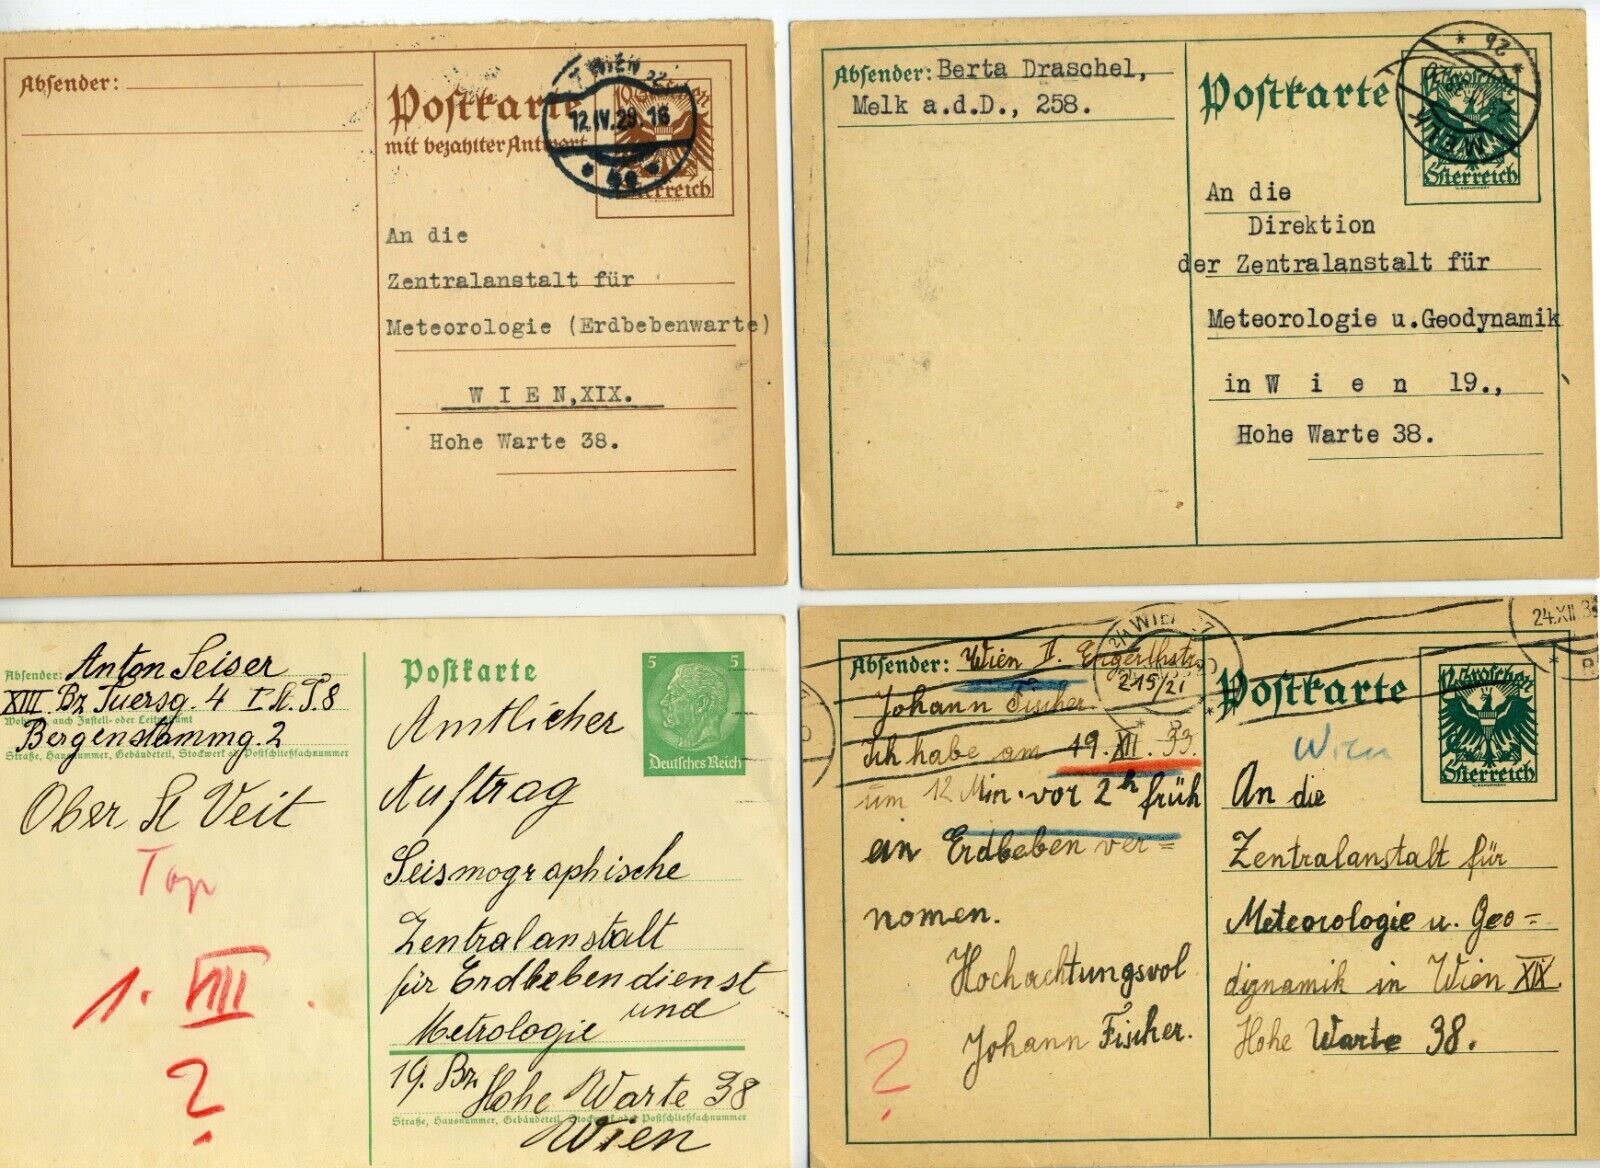 Absender:
Postkarte
mit bezahlter Antwort
10 Groschen
Österreich
WIEN
12.IV.29.16
An die
Zentralanstalt für
Meteorologie (Erdbebenwarte)
W I E N,XIX.
Hohe Warte 38.
Absender: Berta Draschel,
Melk a.d.D., 258.
Postkarte
12 Groschen
Österreich
MELK
An die
Direktion
der Zentralanstalt für
Meteorologie u.Geodynamik
in W i e n 19.,
Hohe Warte 38.
Absender: Anton Seiser
XIII. Bz Tuersg. 4 I. St. T. 8
Straße, Hausnummer, Gebäudeteil, Stockwerk od. Postschließfachnummer
Bergenstammg. 2
Ober St Veit
Top
1. VIII.
?
Postkarte
5 5
Deutsches Reich
Amtlicher
Auftrag
Seismographische
Zentralanstalt
für Erdbebendienst
und
Metrologie
19. Bz Hohe Warte 38
Straße, Hausnummer, Gebäudeteil, Stockwerk oder Postschließfachnummer
Wien
Absender: Wien II. Engerthstr.
215/21
Johann Fischer
Ich habe am 19. XII. 33.
um 12 Min. vor 2h früh
ein Erdbeben ver=
nomen.
Hochachtungsvol
Johann Fischer.
?
Postkarte
24.XII.3
12 Groschen
Österreich
Wien
An die
Zentralanstalt für
Meteorologie u. Geo=
dignamik in Wien XIX.
Hohe Warte 38.